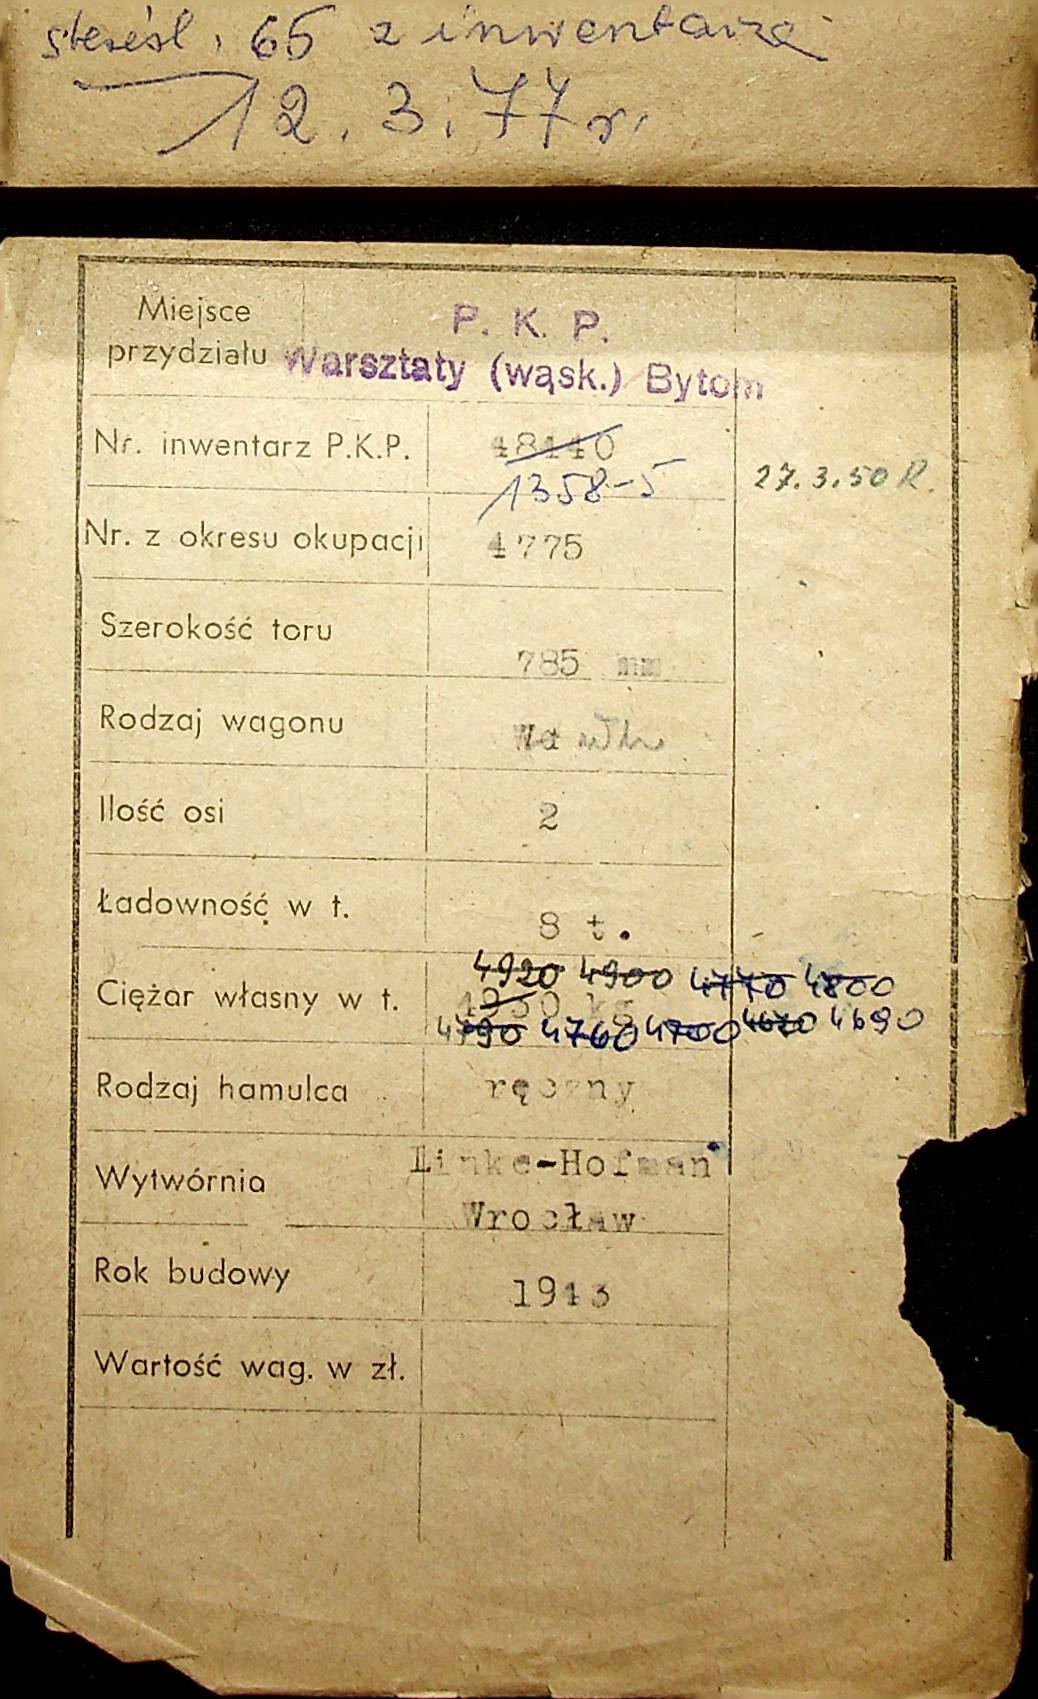 skreśl. 65 z inwentarza
12.3.77r.
Miejsce
przydziału
P. K. P.
Warsztaty (wąsk.) Bytom
Nr. inwentarz P.K.P. 48140
1358-5 27.3.50 R.
Nr. z okresu okupacji 4775
Szerokość toru
785 mm
Rodzaj wagonu
Ilość osi 2
Ładowność w t. 8 t.
4920 4900 4770 4800
Ciężar własny w t. kg
4790 4760 4700 4620 4690
Rodzaj hamulca ręczny
Wytwórnia Linke-Hofman
Wrocław
Rok budowy 1913
Wartość wag. w zł.